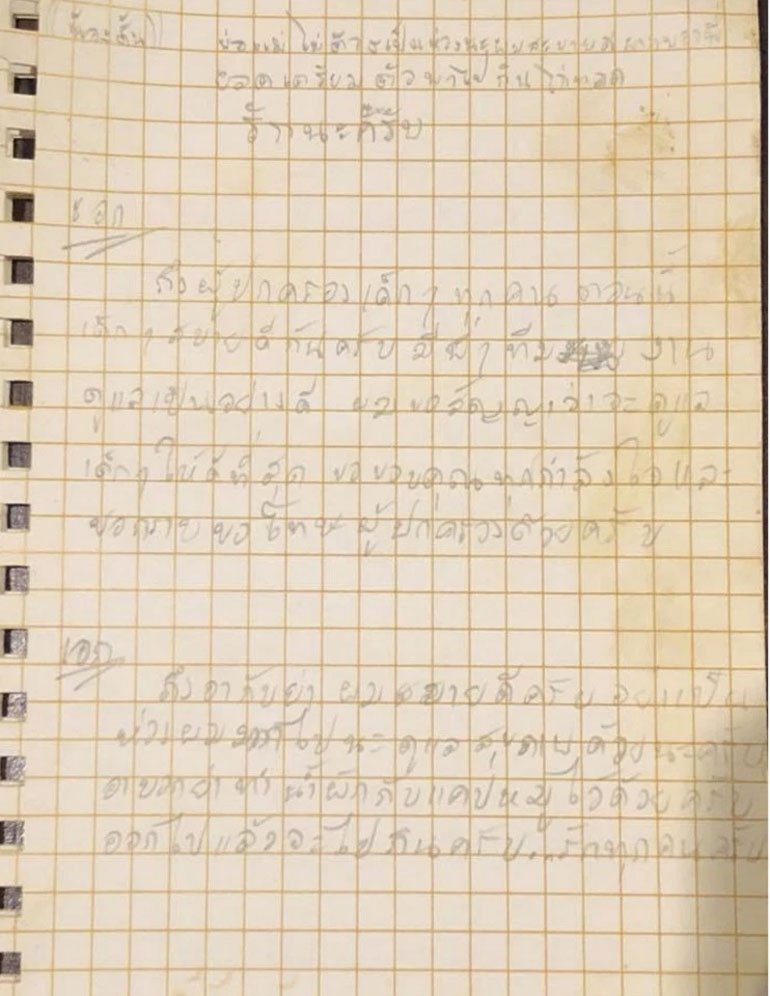 พ่อแม่ ไม่ต้องเป็นห่วงนะผมสบายดี
เตรียมตัวพาไปกินไก่ทอด
ด้วยนะครับ
เอก
ถึงผู้ปกครองเด็กๆทุกคน ตอนนี้
เด็กๆ สบายดีกันครับ มีพี่ๆทีม งาน
ดูแลเป็นอย่างดี ผมขอสัญญาว่าจะดูแล
เด็กๆให้ดีที่สุด ขอขอบคุณทุกกำลังใจและ
ขอกราบขอโทษผู้ปกครองด้วยครับ
เอก
ถึงอากับย่า ผมสบายดีครับ อย่าเป็น
ห่วงผม นะ ดูแลสุขภาพด้วยนะครับ
ย่าทำน้ำผักกับแคปหมูไว้ด้วยครับ
ออกไปแล้วจะไปกินครับ...รักทุกคนครับ